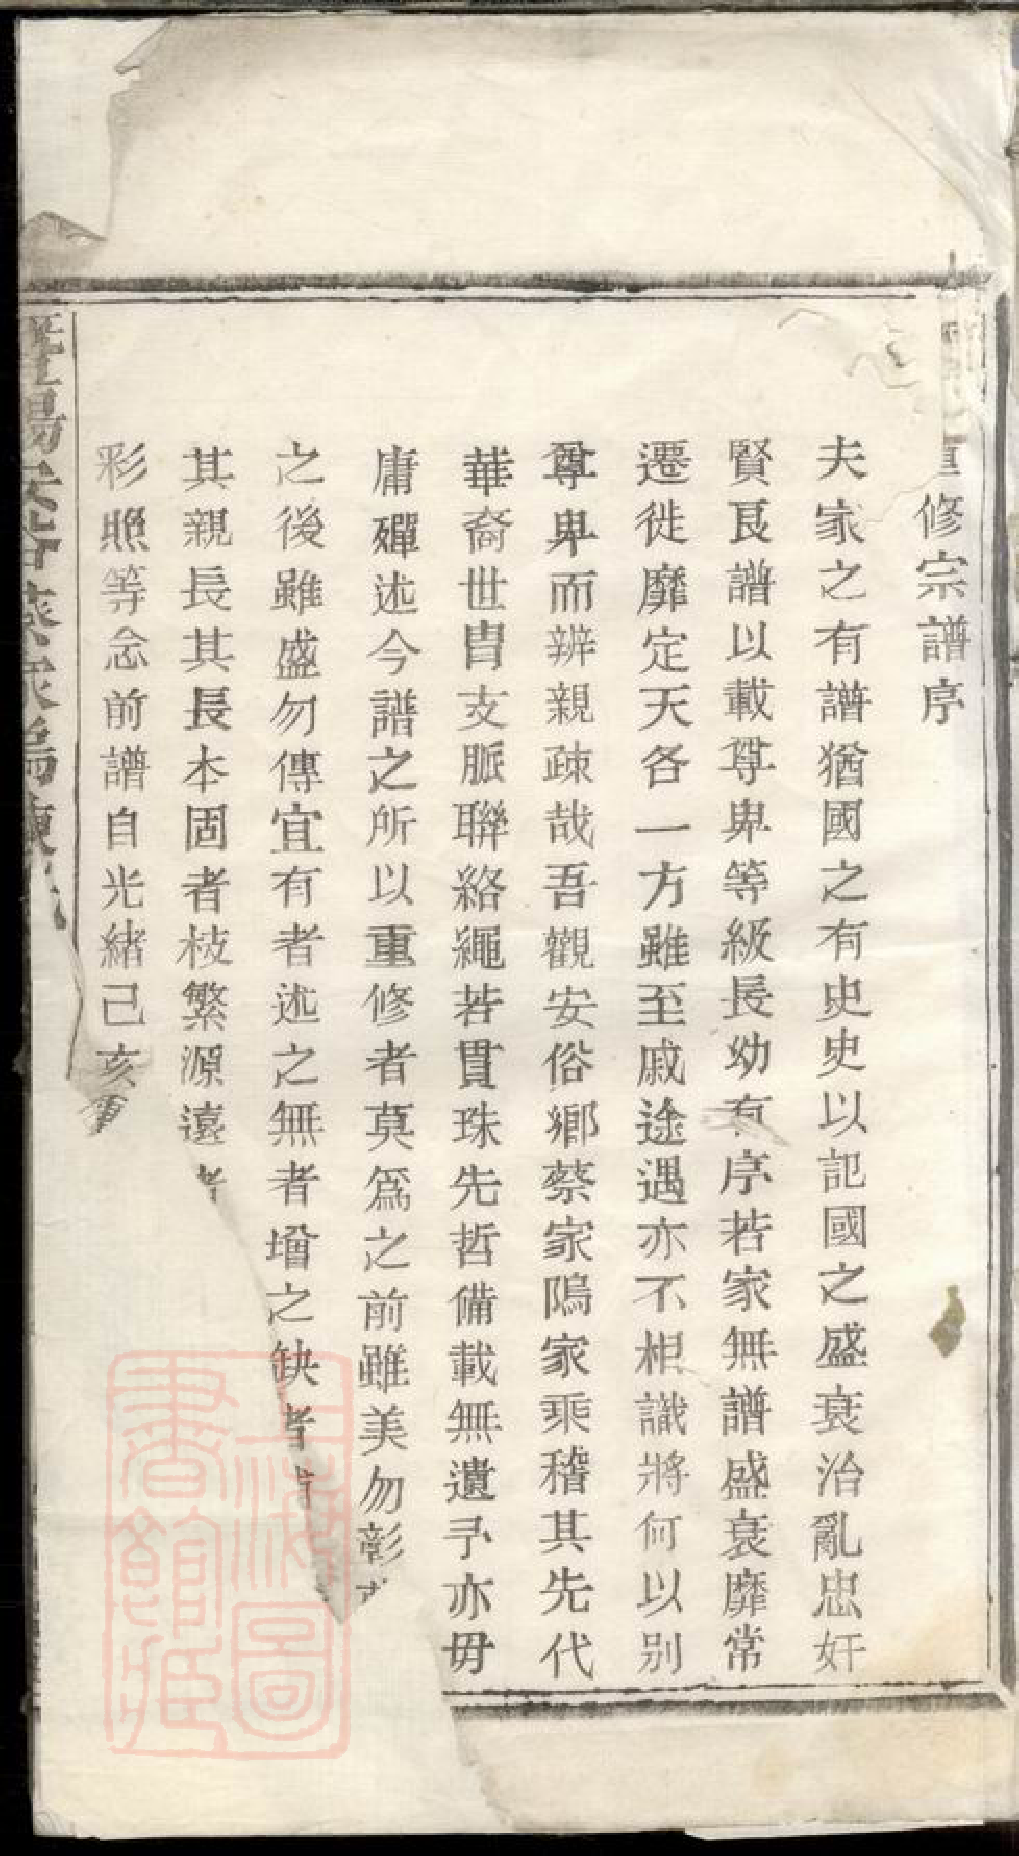 重修宗譜序
夫家之有譜猶國之有史史以記國之盛衰治亂忠奸
賢良譜以載尊卑等級長幼有序若家無譜盛衰靡常
遷徙靡定天各一方雖至戚途遇亦不相識將何以別
尊卑而辨親疎哉吾觀安俗鄉蔡家隖家乘稽其先代
華裔世胄支脈聯絡繩若貫珠先哲備載無遺予亦毋
庸殫述今譜之所以重修者莫爲之前雖美勿彰
之後雖盛勿傳宜有者述之無者增之缺者
其親長其長本固者枝繁源遠者
彩照等念前譜自光緒己亥重
暨陽安俗蔡家隖陳氏
上海圖書館藏